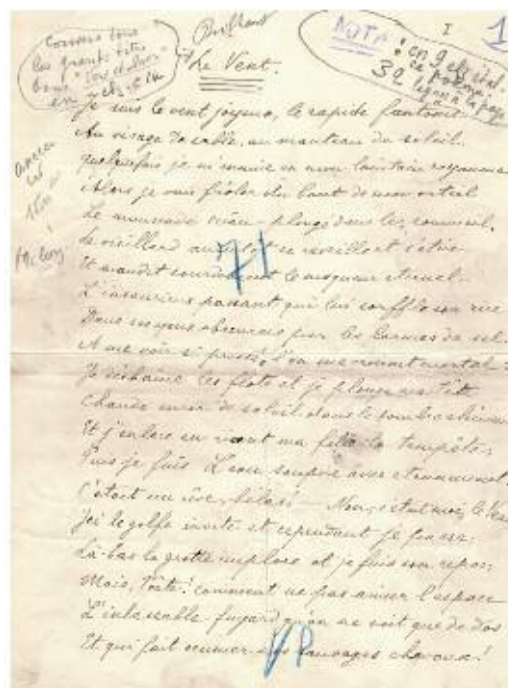 I
1
NOTA
Le Vent.
Je suis le vent joyeux, le rapide fantôme
Au visage de sable, au manteau de soleil.
Quelquefois je m'ennuie en mon lointain royaume
Alors je vais frôler du bout de mon orteil
Le maussade océan plongé dans le sommeil.
Le vieillard aussitôt se réveille et s'étire
Et maudit sourdement le moqueur éternel
L'insoucieux passant qui lui souffle son rire
Dans ses yeux obscurcis par les larmes de sel.
A me voir si pressé, l'on me croirait mortel
Je déchaîne les flots et je plonge ma tête
Chaude encor de soleil dans le sombre
Et j'enlace en riant ma fille la tempête;
Puis je fuis. L'eau soupire avec étonnement.
C'était un rêve, hélas! — Non, c'était moi, le Vent
Ici le golfe invite et cependant je passe;
Là-bas la grotte implore et je fuis son repos;
Mais, comment ne pas aimer l'espace
L'inlassable fuyard qu'on ne voit que de dos
Et qui fait écumer ses sauvages chevaux!
71